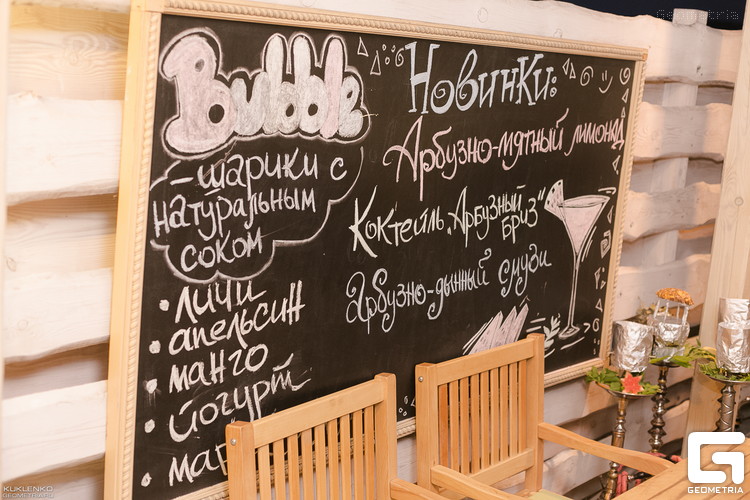 Bubble
- шарики с
натуральным
соком
• личи
• апельсин
• манго
• йогурт
• ма
Новинки:
Арбузно-мятный лимонад
Коктейль "Арбузный
бриз"
Арбузно-дынный смузи
Geometria
KUKLENKO
GEOMETRIA.RU
G
GEOMETRIA